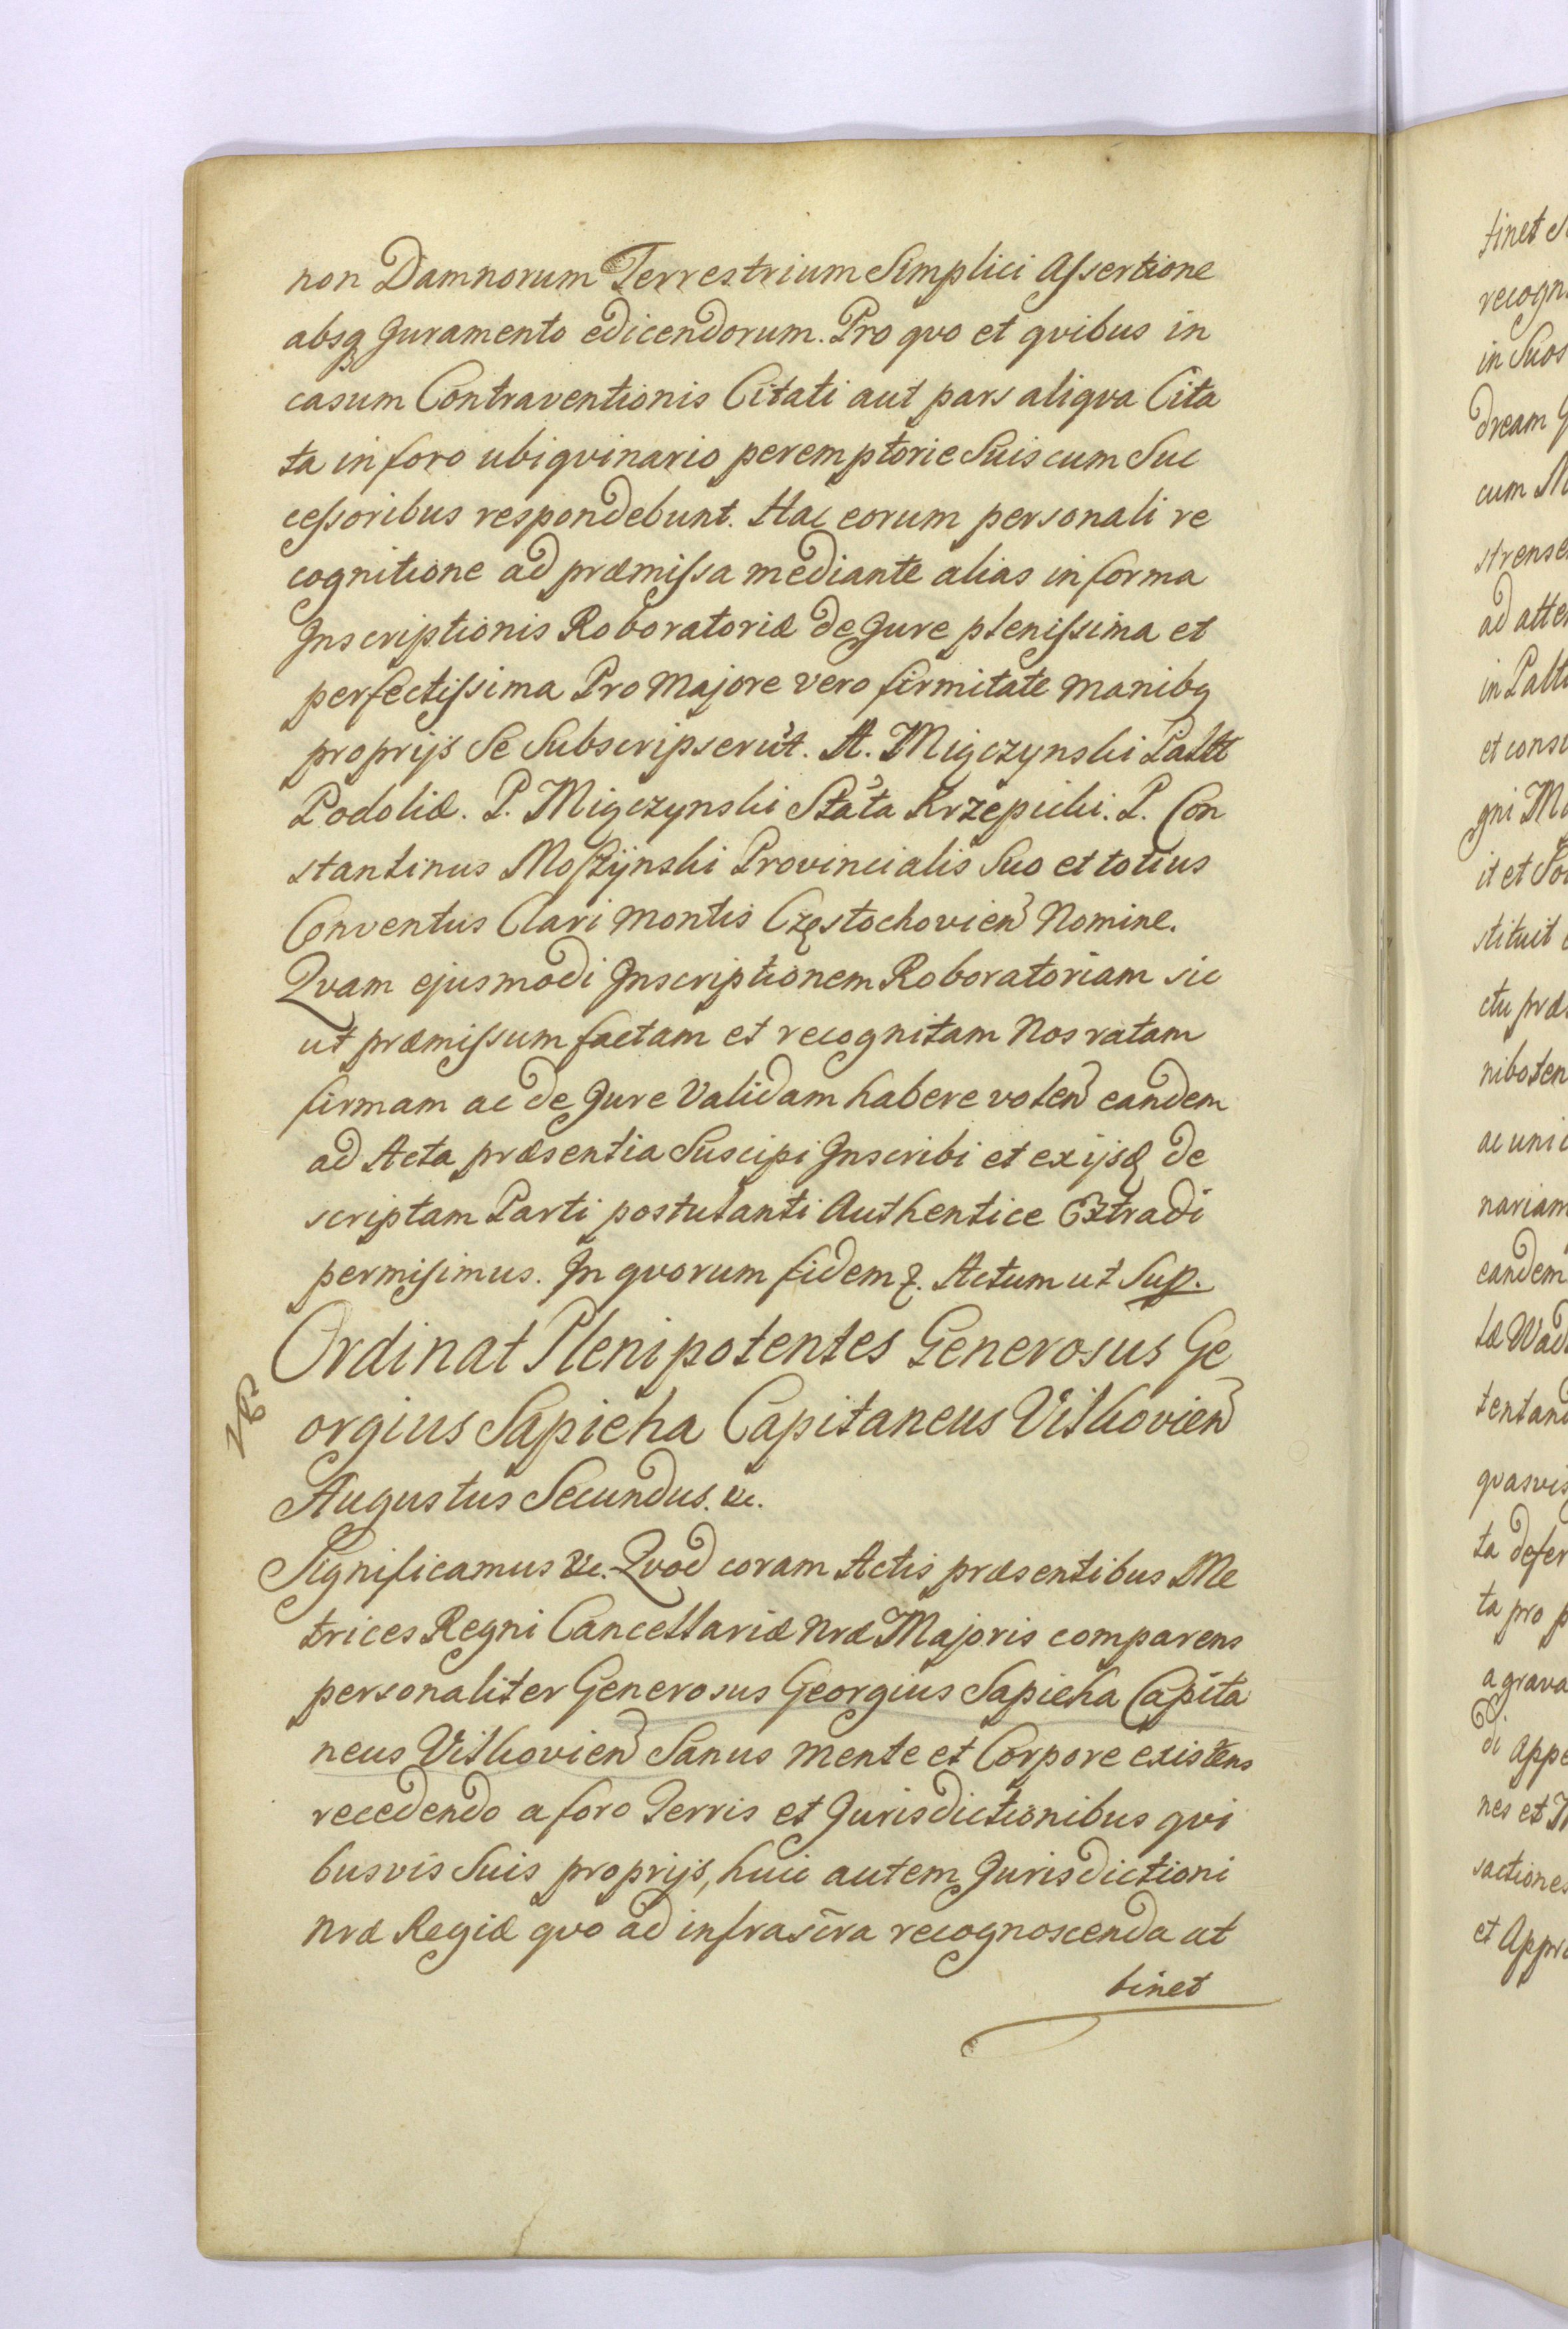 non Damnorum Terrestrium Simplici Assertione
absq Juramento edicendorum. Pro qvo et qvibus in
casum Contraventionis Citati aut pars aliqva Cita
ta in foro ubiqvinario peremptorie Suis cum Suc
cessoribus respondebunt. Hac eorum personali re
cognitione ad præmissa mediante alias in forma
Inscriptionis Roboratoriæ de Jure plenissima et
perfectissima Pro Majore vero firmitate manibq
proprijs Se Subscripserut. A. Miączynski Paltt
Podoliæ. P. Miączynski Stata Krzepicki. P. Con
stantinus Moszÿnski Provincialis Suo et totius
Conventus Clari Montis Częstochovien Nomine.
Qvam ejusmodi Inscriptionem Roboratoriam sic
ut præmissum factam et recognitam Nos ratam
firmam ac de Jure Validam habere volen eandem
ad Acta præsentia Suscipi Inscribi et ex ijsd de
scriptam Parti postulanti Authentice Extradi
permisimus. In qvorum fidem z. Actum ut Sup.
Ordinat Plenipotentes Generosus Ge
orgius Sapieha Capitaneus Vilkovien
Augustus Secundus. &c.
Significamus &c. Qvod coram Actis præsentibus Me
trices Regni Cancellariæ Nræ Majoris comparens
personaliter Generosus Georgius Sapieha Capita
neus Vilkovien Sanus mente et Corpore existens
recedendo a foro Terris et Jurisdictionibus qvi
busvis Suis proprijs, huic autem Jurisdictioni
Nræ Regiæ qvo ad infrascra recognoscenda at
tinet
tinet
recogn
in Suos
dream
cum
strense
ad atte
in Palt
et cons
gni
it et
stituit
ctu præ
niboten
ac uni
nariam
eandem
tæ Wad
tentan
qvasvis
ta defer
ta pro p
agrava
di Appe
nes et
sactiones
et Appr